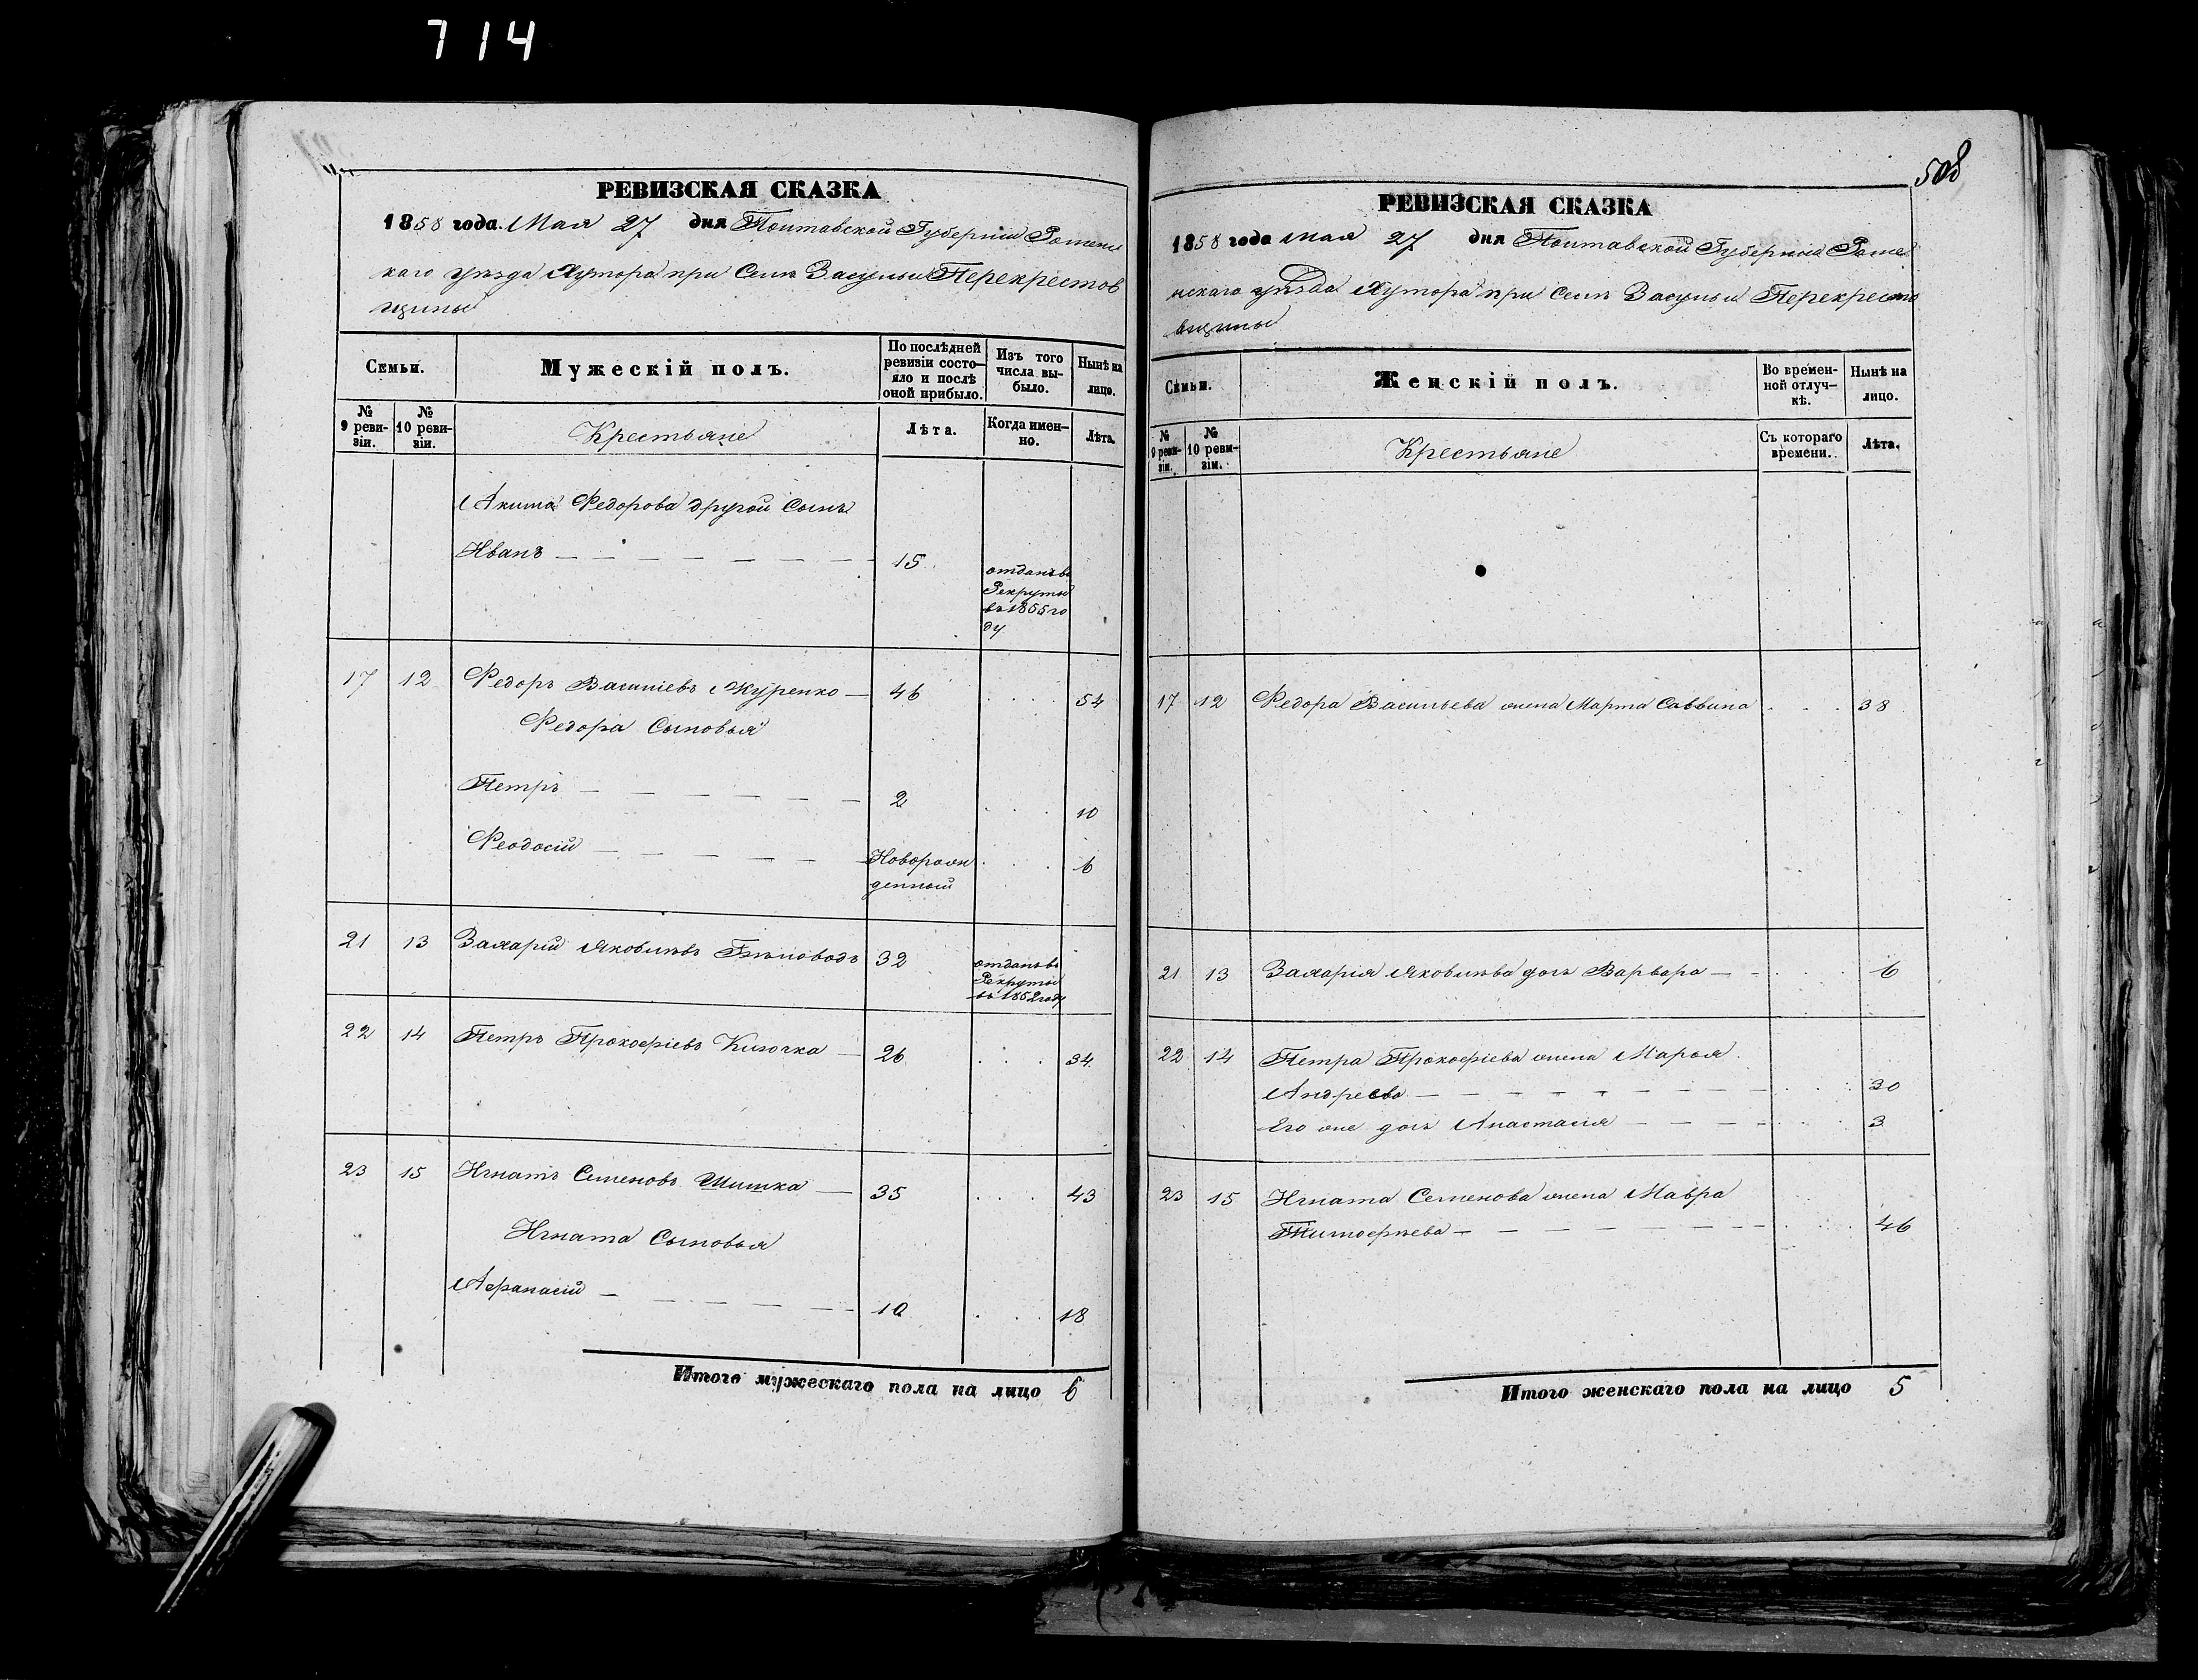 714
РЕВИЗСКАЯ СКАЗКА
1858 года Мая 27 дня Полтавской Губерніи Роменс
каго уѣзда Хутора при Селѣ Засульи Перекрестов
щины
Семьи.
Мужескій полъ.
По послѣдней
ревизіи состо-
яло и послѣ
оной прибыло.
Изъ того
числа вы-
было.
Нынѣ на
лицо.
№
9 реви-
зіи.
№
10 реви-
зіи.
Крестьяне
Лѣта.
Когда имен-
но.
Лѣта.
Акима Федорова другой Сынъ
Иванъ — 15
отданъ въ
Рекруты
въ 1855 го
ду
17 12 Федоръ Василіевъ Журенко — 46 . . . 54
Федора Сыновья
Петръ — 2 . . . 10
Феодосій — Новорож . . . 6
денный
21 13 Захарій Яковлевъ 32
отданъ въ
Рекруты
въ 1852 году
22 14 Петръ Прокофіевъ Кизочка — 26 . . . 34
23 15 Игнатъ Семеновъ Шишка — 35 . . . 43
Игната Сыновья
Афанасій — 10 . . . 18
Итого мужескаго пола на лицо 6
508
РЕВИЗСКАЯ СКАЗКА
1858 года мая 27 дня Полтавской Губерніи Роме
нскаго уѣзда Хутора при Селѣ Засульи Перекресто
вщины
Семьи.
Женскій полъ.
Во времен-
ной отлуч-
кѣ.
Нынѣ на
лицо.
№
9 реви-
зіи.
№
10 реви-
зіи.
Крестьяне
Съ котораго
времени.
Лѣта.
17 12 Федора Васильева жена Марта Саввина . . . 38
21 13 Захарія Яковлева дочь Варвара — . . . 6
22 14 Петра Прокофіева жена Марья
Андреева — . . . 30
Его же дочь Анастасія — . . . 3
23 15 Игната Семенова жена Мавра
Тимофѣева — . . . 46
Итого женскаго пола на лицо 5